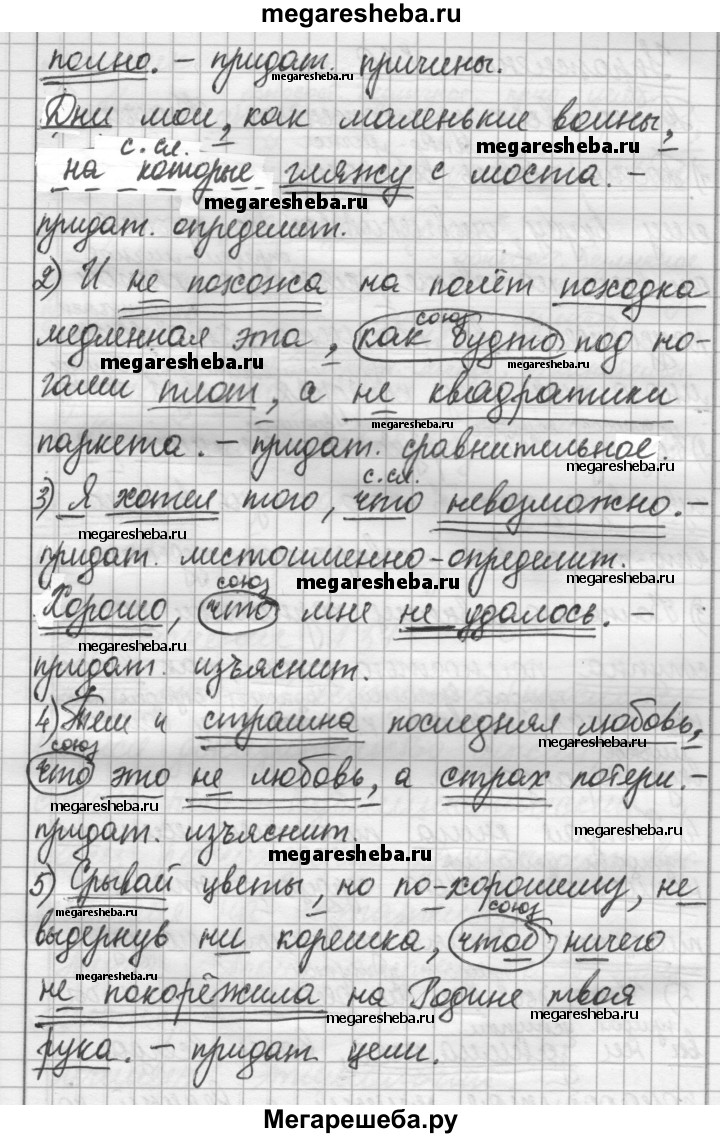 megaresheba.ru
полно. – придат. причины.
megaresheba.ru
Дни мои, как маленькие волны,
с. сл.
megaresheba.ru
на которые гляжу с моста. –
megaresheba.ru
придат. определит.
2) И не похожа на полёт походка
союз
медленная эта, как будто под но-
megaresheba.ru
megaresheba.ru
гами плот, а не квадратики
megaresheba.ru
паркета. – придат. сравнительное.
megaresheba.ru
с. сл.
3) Я хотел того, что невозможно. –
megaresheba.ru
придат. местоименно-определит.
союз
megaresheba.ru
Хорошо, что мне не удалось. –
придат. изъяснит.
4) Тем и страшна последняя любовь,
союз
megaresheba.ru
что это не любовь, а страх потери. –
megaresheba.ru
придат. изъяснит.
megaresheba.ru
megaresheba.ru
5) Срывай цветы, но по-хорошему, не
megaresheba.ru
союз
выдернув ни корешка, чтоб ничего
megaresheba.ru
не покорёжила на Родине твоя
megaresheba.ru
megaresheba.ru
рука. – придат. цели.
Мегарешеба.ру